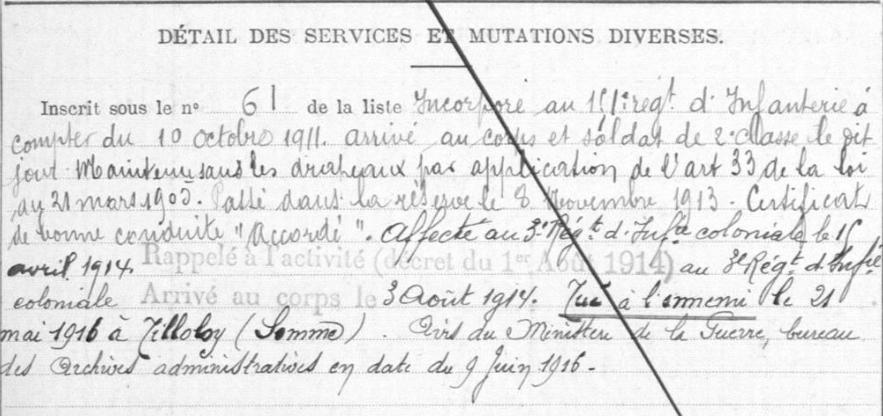 DÉTAIL DES SERVICES ET MUTATIONS DIVERSES.
Inscrit sous le n° 61 de la liste Incorporé au régt d'Infanterie à
compter du 10 octobre 1911. arrivé au corps et soldat de 2e classe le dit
jour. Maintenu sous les drapeaux par application de l'art 33 de la loi
du 21 mars 1905. Passé dans la réserve le 8 Novembre 1913. Certificat
de bonne conduite "Accordé". Affecté au 3e Régt d'Infie coloniale le 15
avril 1914. Rappelé à l'activité (décret du 1er Août 1914) au 3e Régt d'Infie
coloniale Arrivé au corps le 3 Août 1914. Tué à l'ennemi le 21
mai 1916 à Tilloloy (Somme). Avis du Ministère de la Guerre, bureau
des Archives administratives en date du 9 Juin 1916.